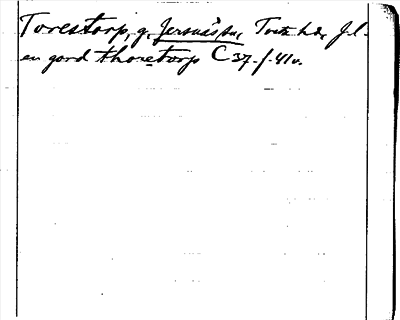 Torestorp, g, Jersnäs sn, Tveta hd, J. l.
en gord thoretorp C 37. f. 41 v.